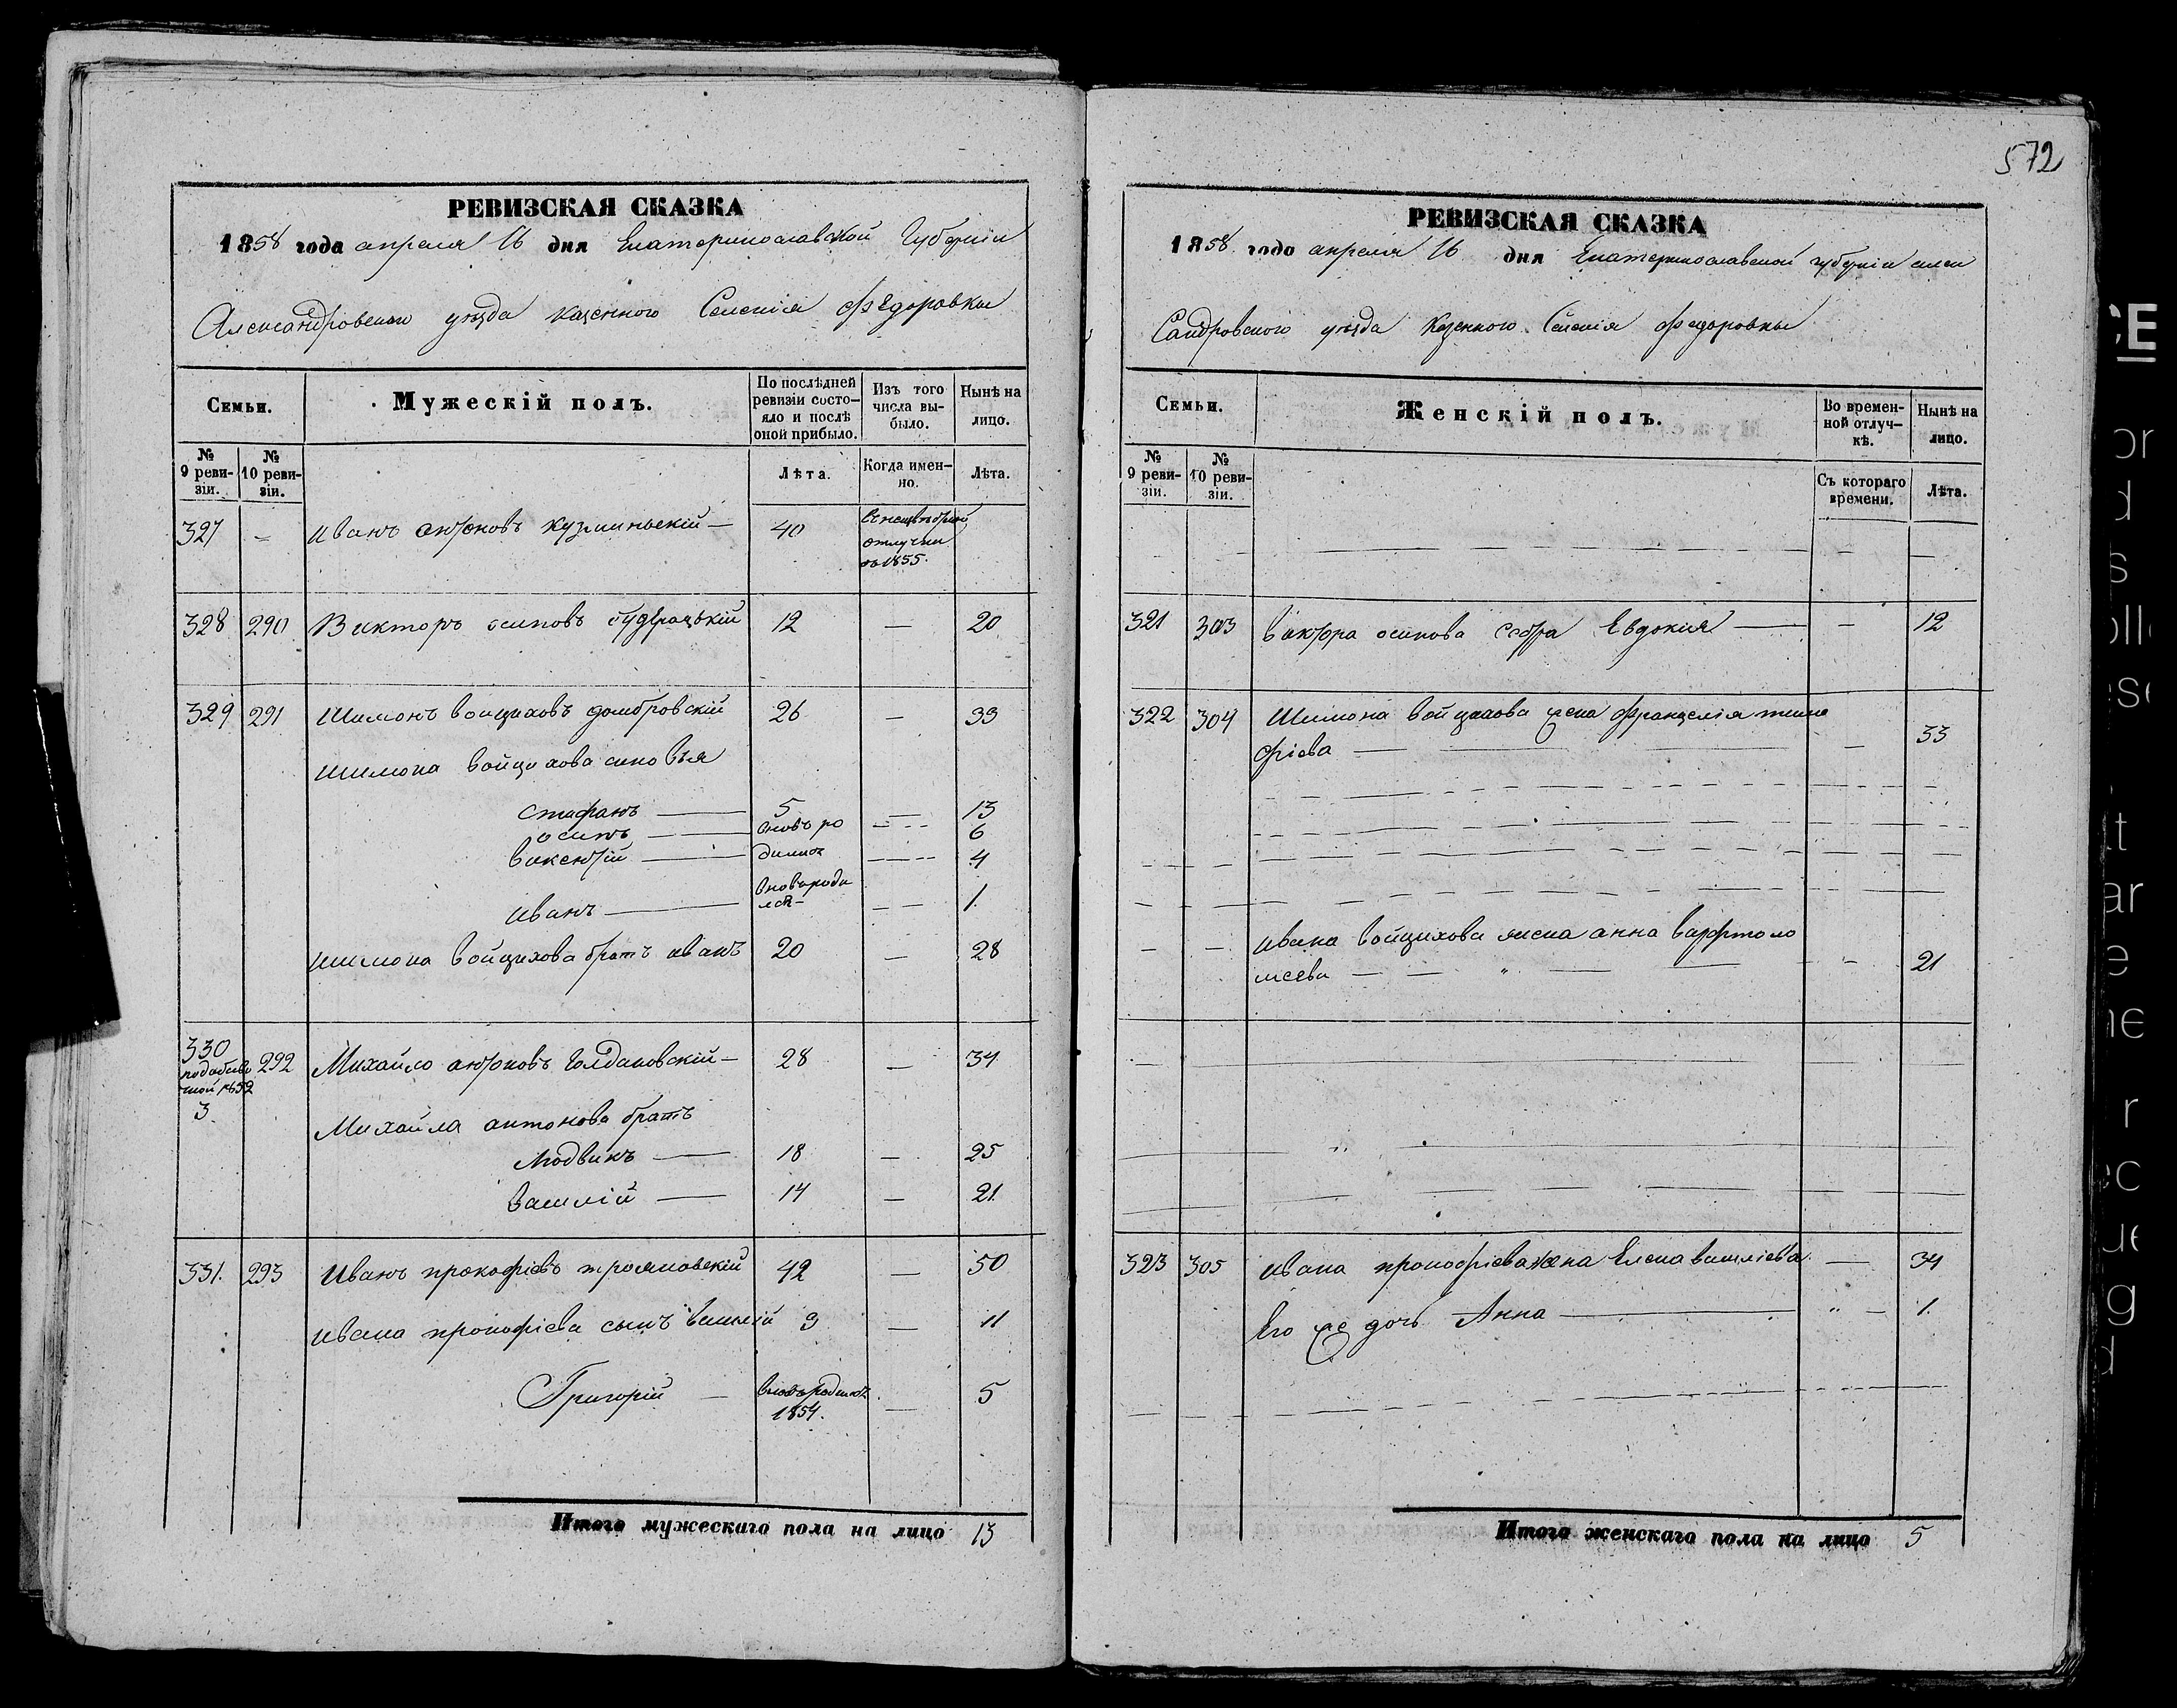 572
РЕВИЗСКАЯ СКАЗКА
1858 года апреля 16 дня Екатеринославской Губерніи
Александровскаго уѣзда казенного Селенія Федоровки
Семьи. Мужескій полъ. По послѣдней ревизіи состояло и послѣ оной прибыло. Изъ того числа выбыло. Нынѣ на лицо.
№ 9 ревизіи. № 10 ревизіи. Лѣта. Когда именно. Лѣта.
327 – Иванъ антоновъ кузминьскій — 40
отлучки
1855.
328 290 Викторъ осиповъ 12 — 20
329 291 Шимонъ войциховъ домбровскій 26 — 33
шимона войцихова сыновья
стефанъ — 5 — 13
осипъ — вновь ро — 6
викентій — дились — 4
иванъ — вновь роди лся — 1
шимона войцихова братъ иванъ 20 — 28
330 292 Михайло антоновъ Голдаковскій — 28 — 34
3
Михайла антонова братъ
Людвикъ — 18 — 25
василій — 14 — 21
331. 293 Иванъ прокофіевъ трояновскій 42 — 50
ивана прокофіева сынъ василій 3 — 11
Григорій — вновь родился 1854. — 5
Итого мужескаго пола на лицо 13
РЕВИЗСКАЯ СКАЗКА
1858 года апреля 16 дня Екатеринославской губерніи алек
Сандровского уѣзда Казенного Селенія Федоровки
Семьи. Женскій полъ. Во временной отлучкѣ. Нынѣ на лицо.
№ 9 ревизіи. № 10 ревизіи. Съ котораго времени. Лѣта.
321 303 виктора осипова сестра Евдокия — – 12
322 304 Шимона войцихова жена
фіева — – 33
ивана войцихова жена анна варфтоло
меева — – 21
323 305 ивана прокофіева жена Елена василіева — 34
Его же дочь Анна — " – 1.
Итого женскаго пола на лицо 5